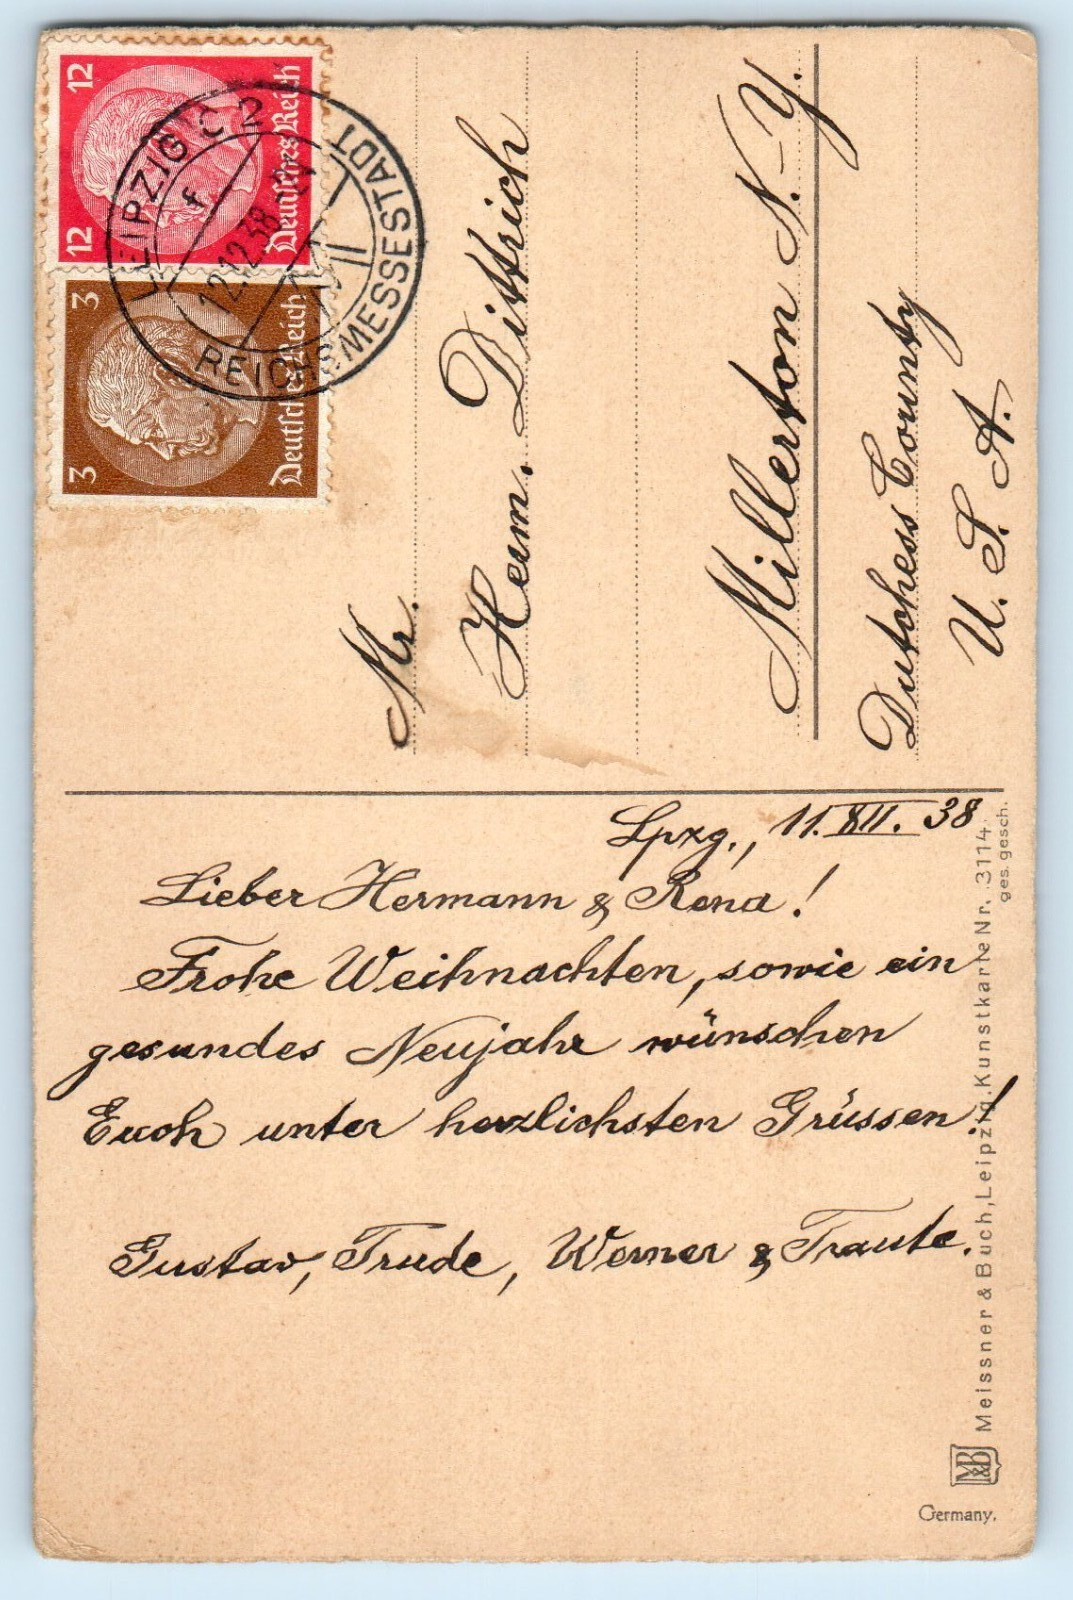 12
12
Deutsches Reich
3
3
Deutsches Reich
LEIPZIG C 2
f
12.12.38
REICHSMESSESTADT
Mr.
Herm. Dittrich
Millerton N.-Y.
Dutchess County
U. S. A.
Lpzg., 11. XII. 38
Lieber Hermann & Rena!
Frohe Weihnachten, sowie ein
gesundes Neujahr wünschen
Euch unter herzlichsten Grüssen!
Gustav, Trude, Werner & Traute.
Meissner & Buch, Leipzig. Kunstkarte Nr. 3114.
ges. gesch.
M&B
Germany.